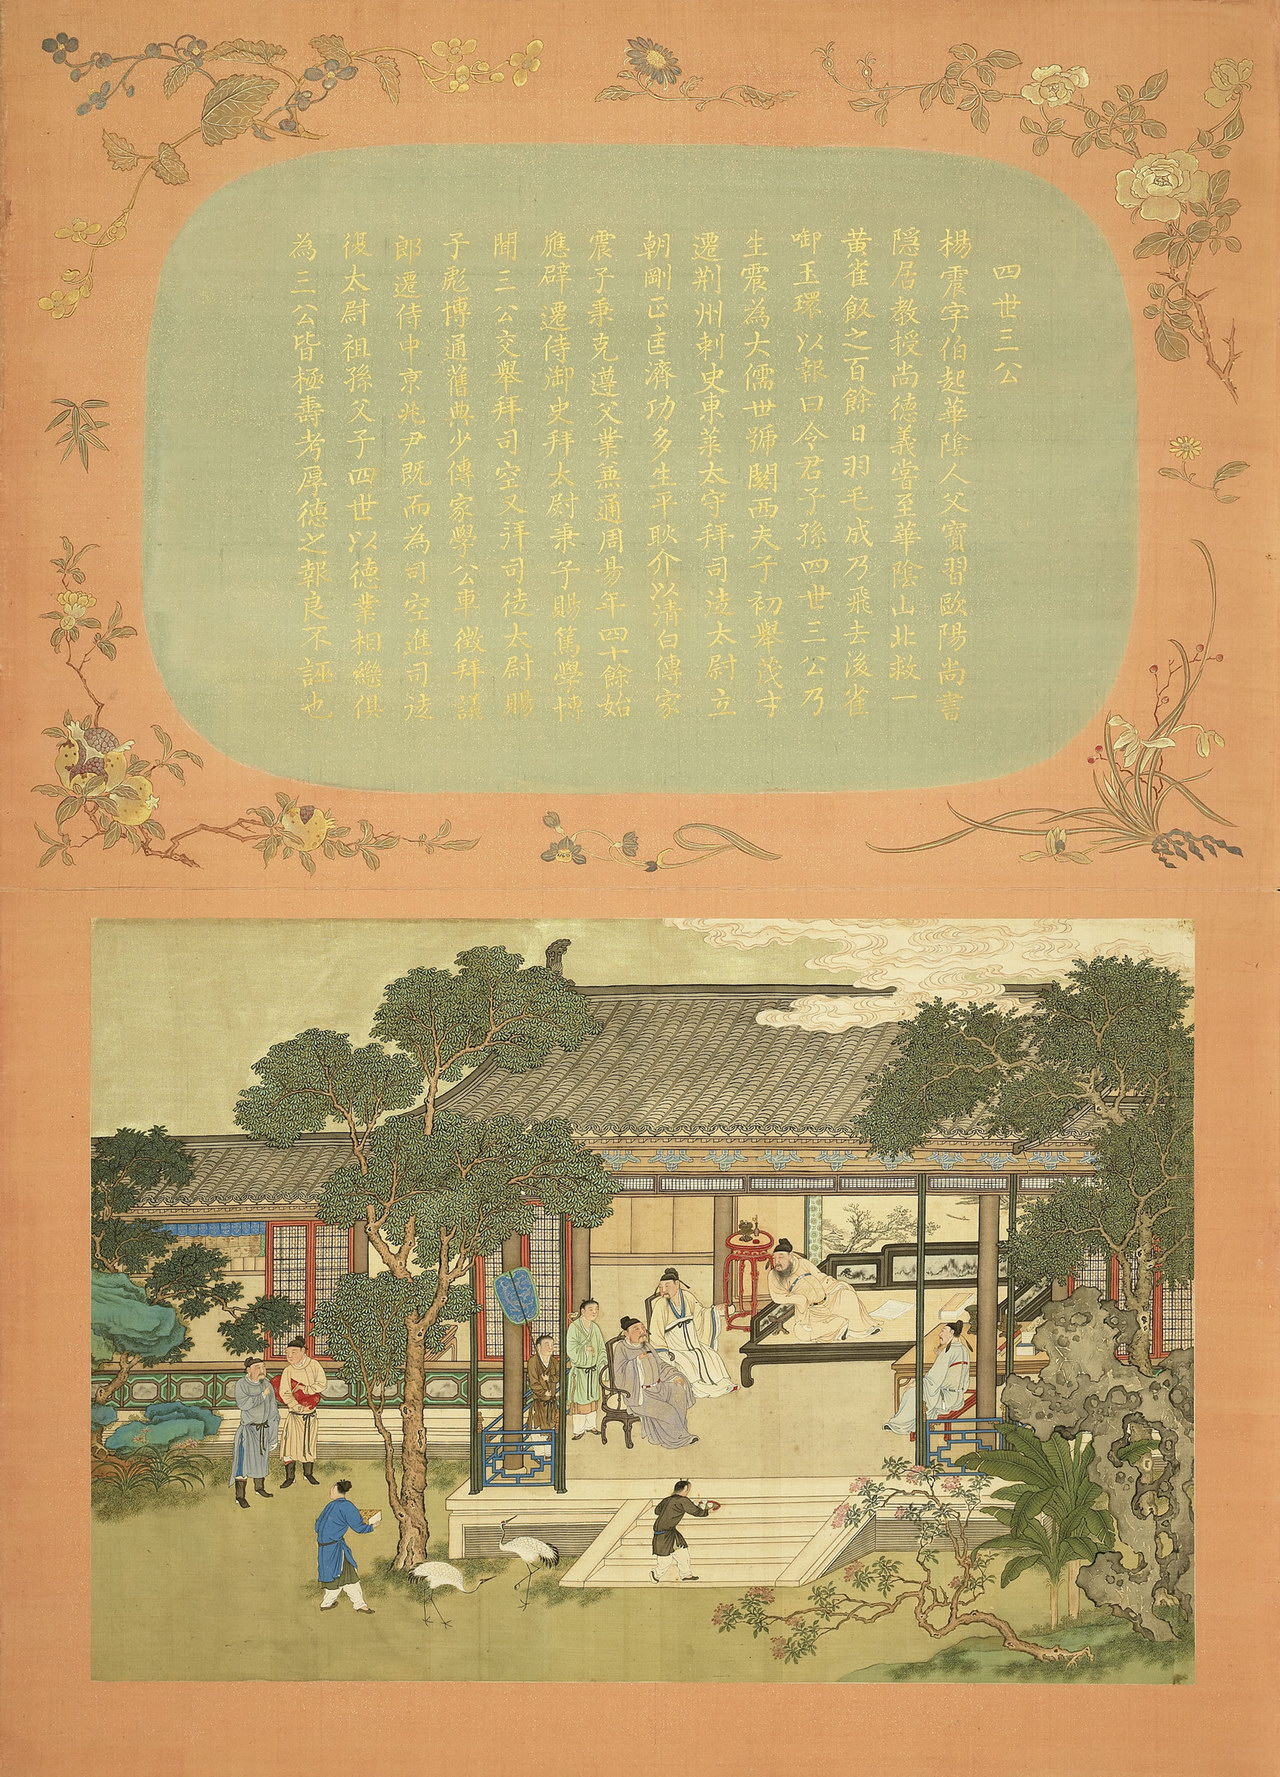 四世三公
楊震字伯起華陰人父寶習歐陽尚書
隱居教授尚德義嘗至華陰山北救一
黃雀飯之百餘日羽毛成乃飛去後雀
御玉環以報曰令君子孫四世三公乃
生震為大儒世號關西夫子初舉茂才
遷荆州刺史東萊太守拜司徒太尉立
朝剛正匡濟功多生平耿介以清白傳家
震子秉克遵父業兼通周易年四十餘始
應辟遷侍御史拜太尉秉子賜篤學博
聞三公交舉拜司空又拜司徒太尉賜
子彪博通舊典少傳家學公車徵拜議
郎遷侍中京兆尹既而為司空進司徒
復太尉祖孫父子四世以德業相繼俱
為三公皆極壽考厚德之報良不誣也